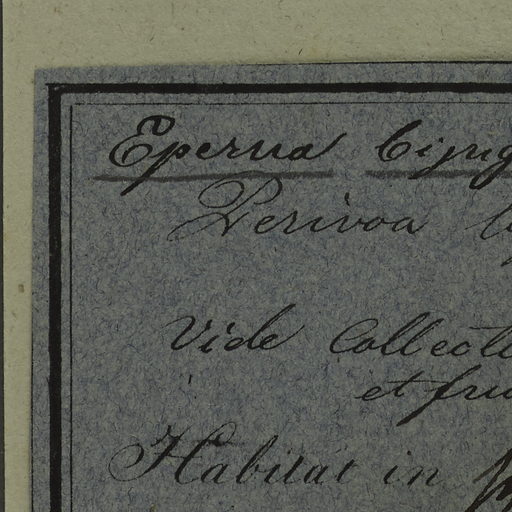 Eperua bijug
Perivoa
Vide Collect
et fru
Habitat in